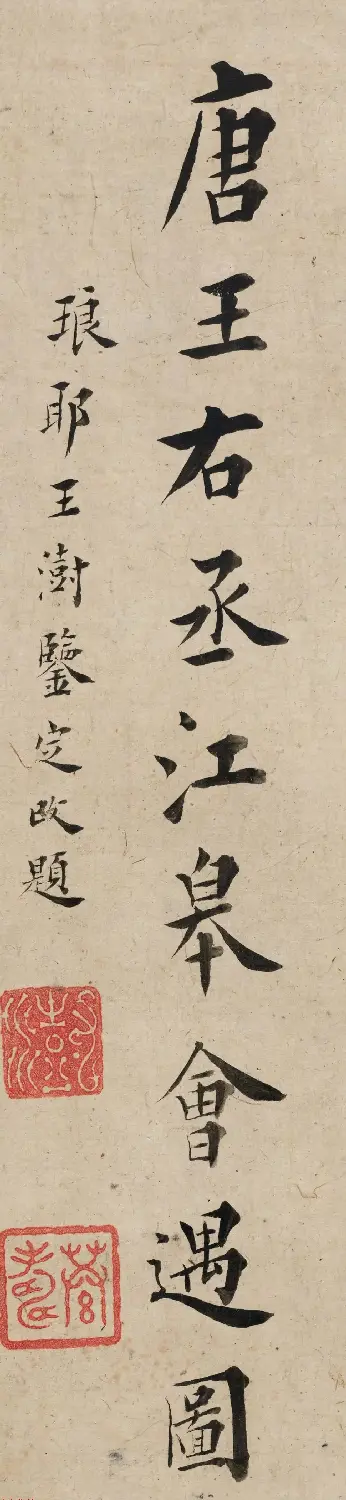 唐王右丞江皋會遇圖
琅耶王澍鑒定改題